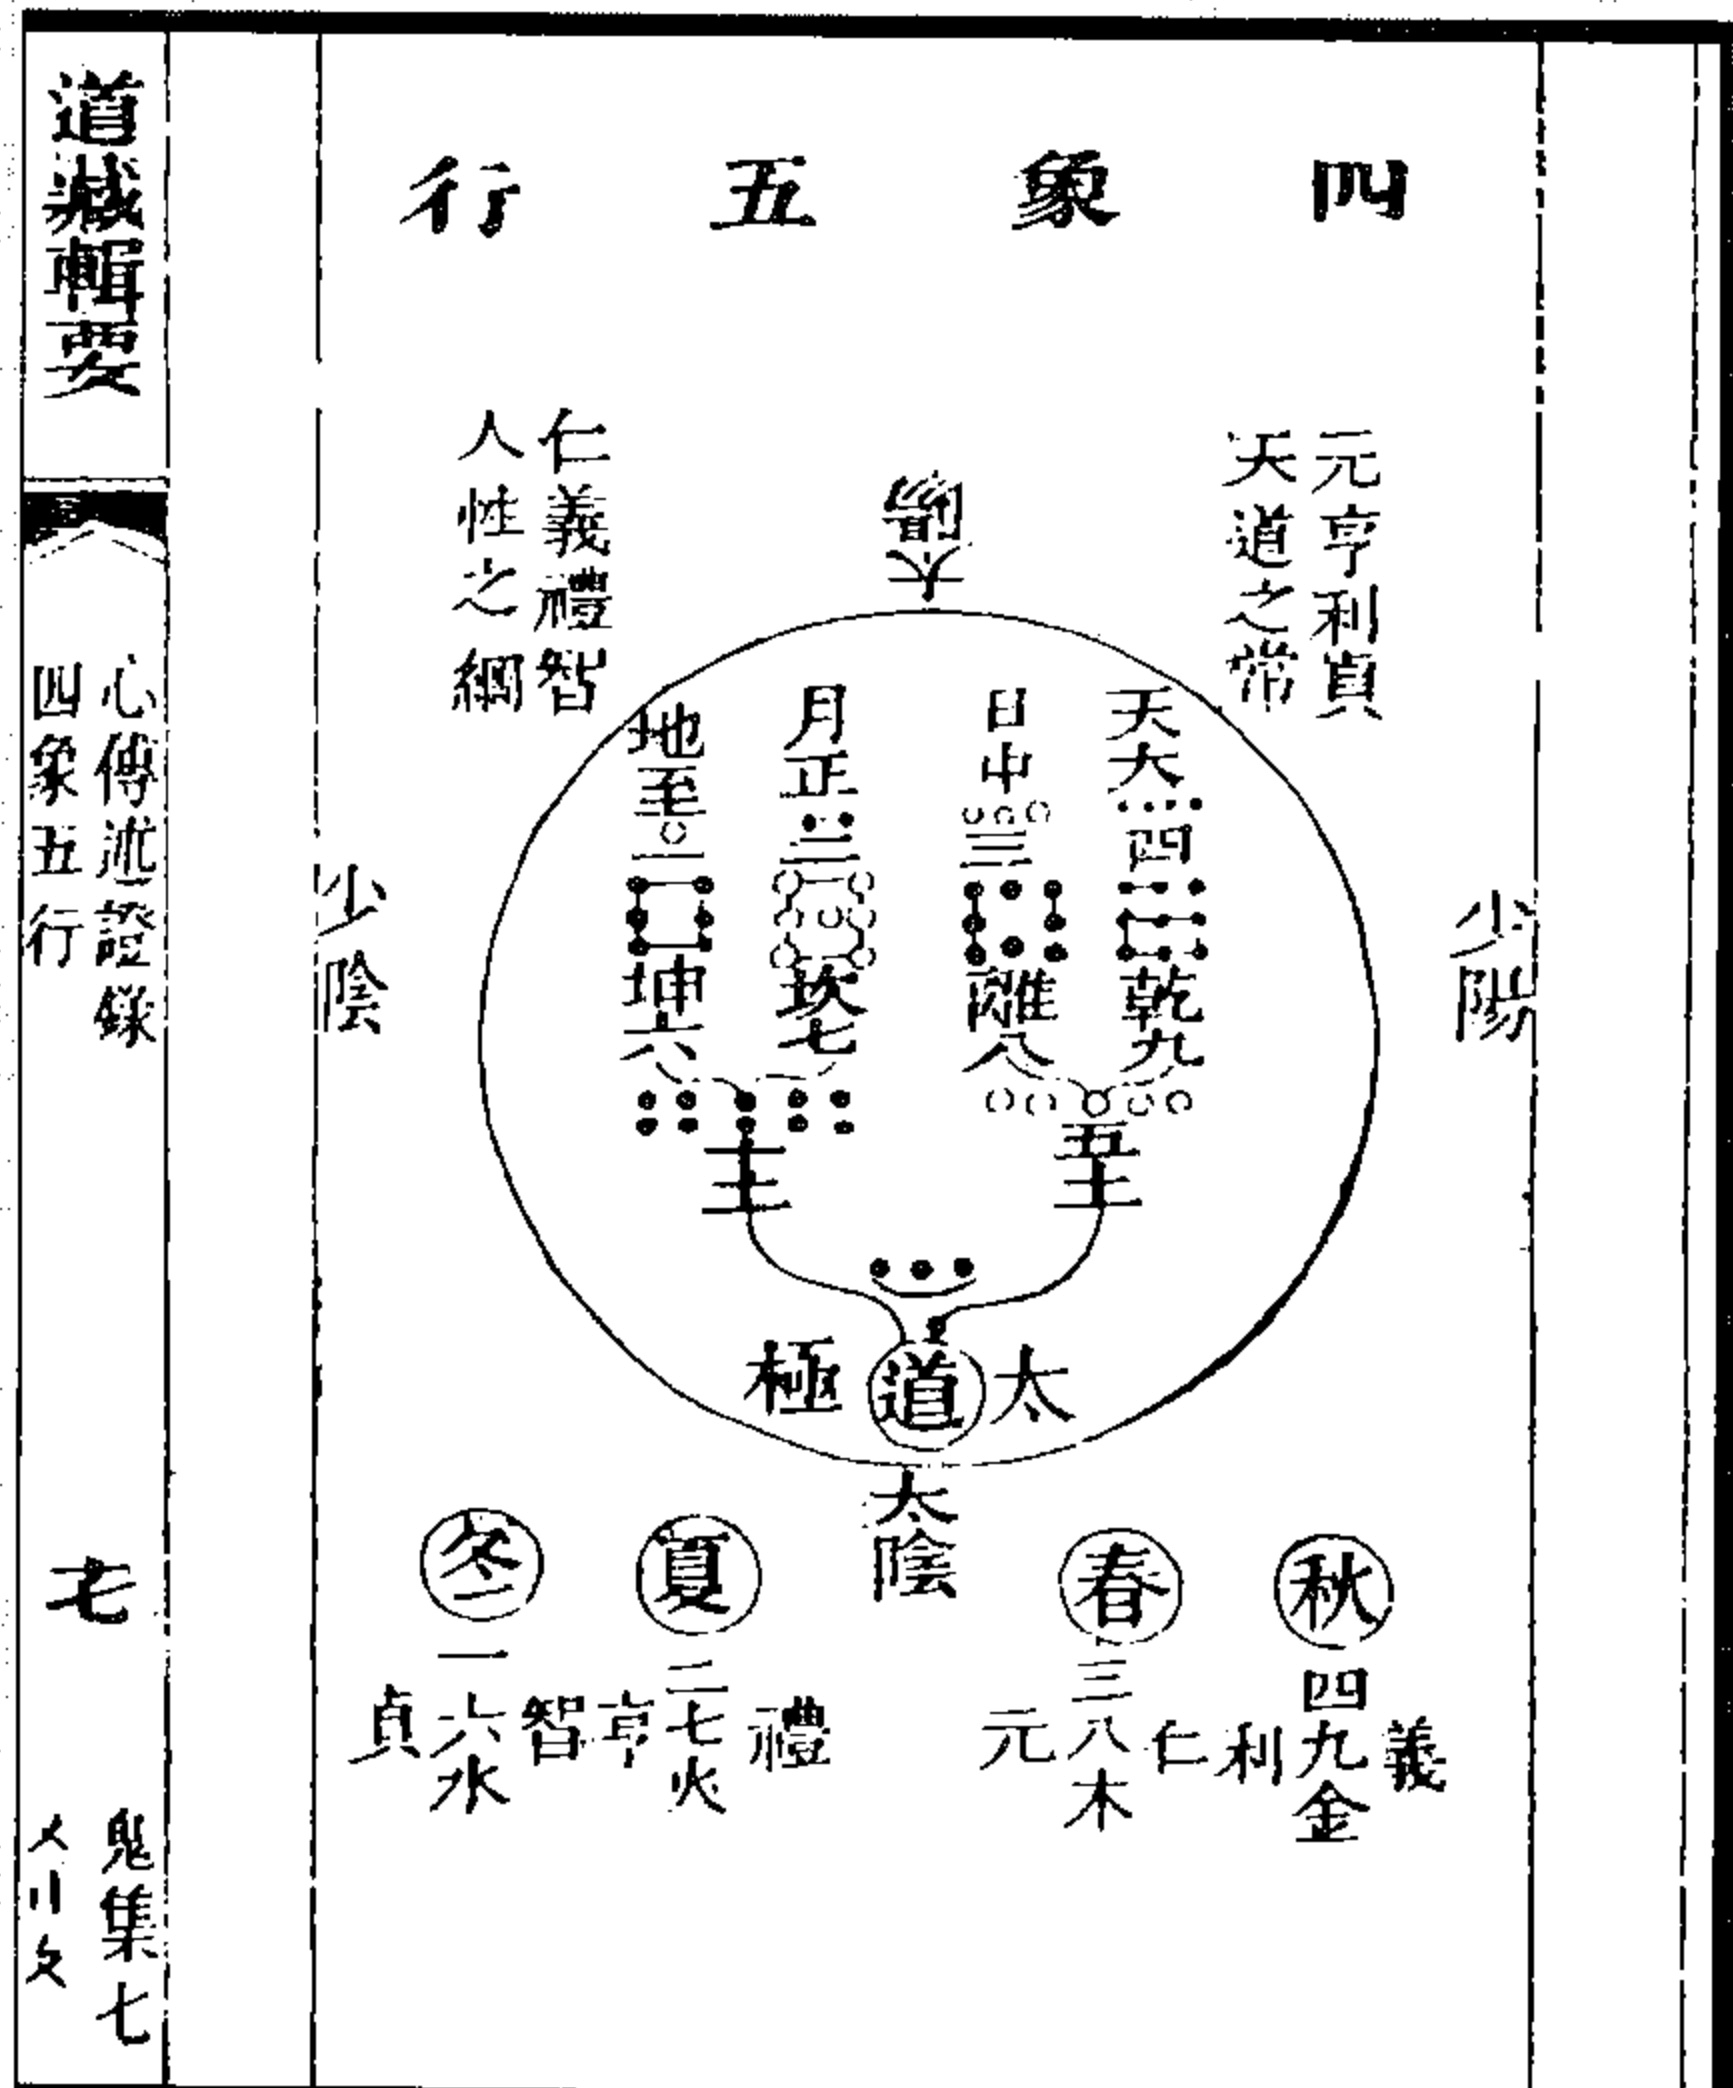 四象五行
元亨利貞
天道之常
仁義禮智
人性之綱
太陽
少陽
少陰
天大四乾九
日中三離八
月正二坎七
地至一坤六
五土
土
太道極
太陰
秋
義
四九金
利
春
仁
三八木
元
夏
禮
二七火
亨
冬
智
一六水
貞
道藏輯要
心傳述證錄
四象五行
鬼集七